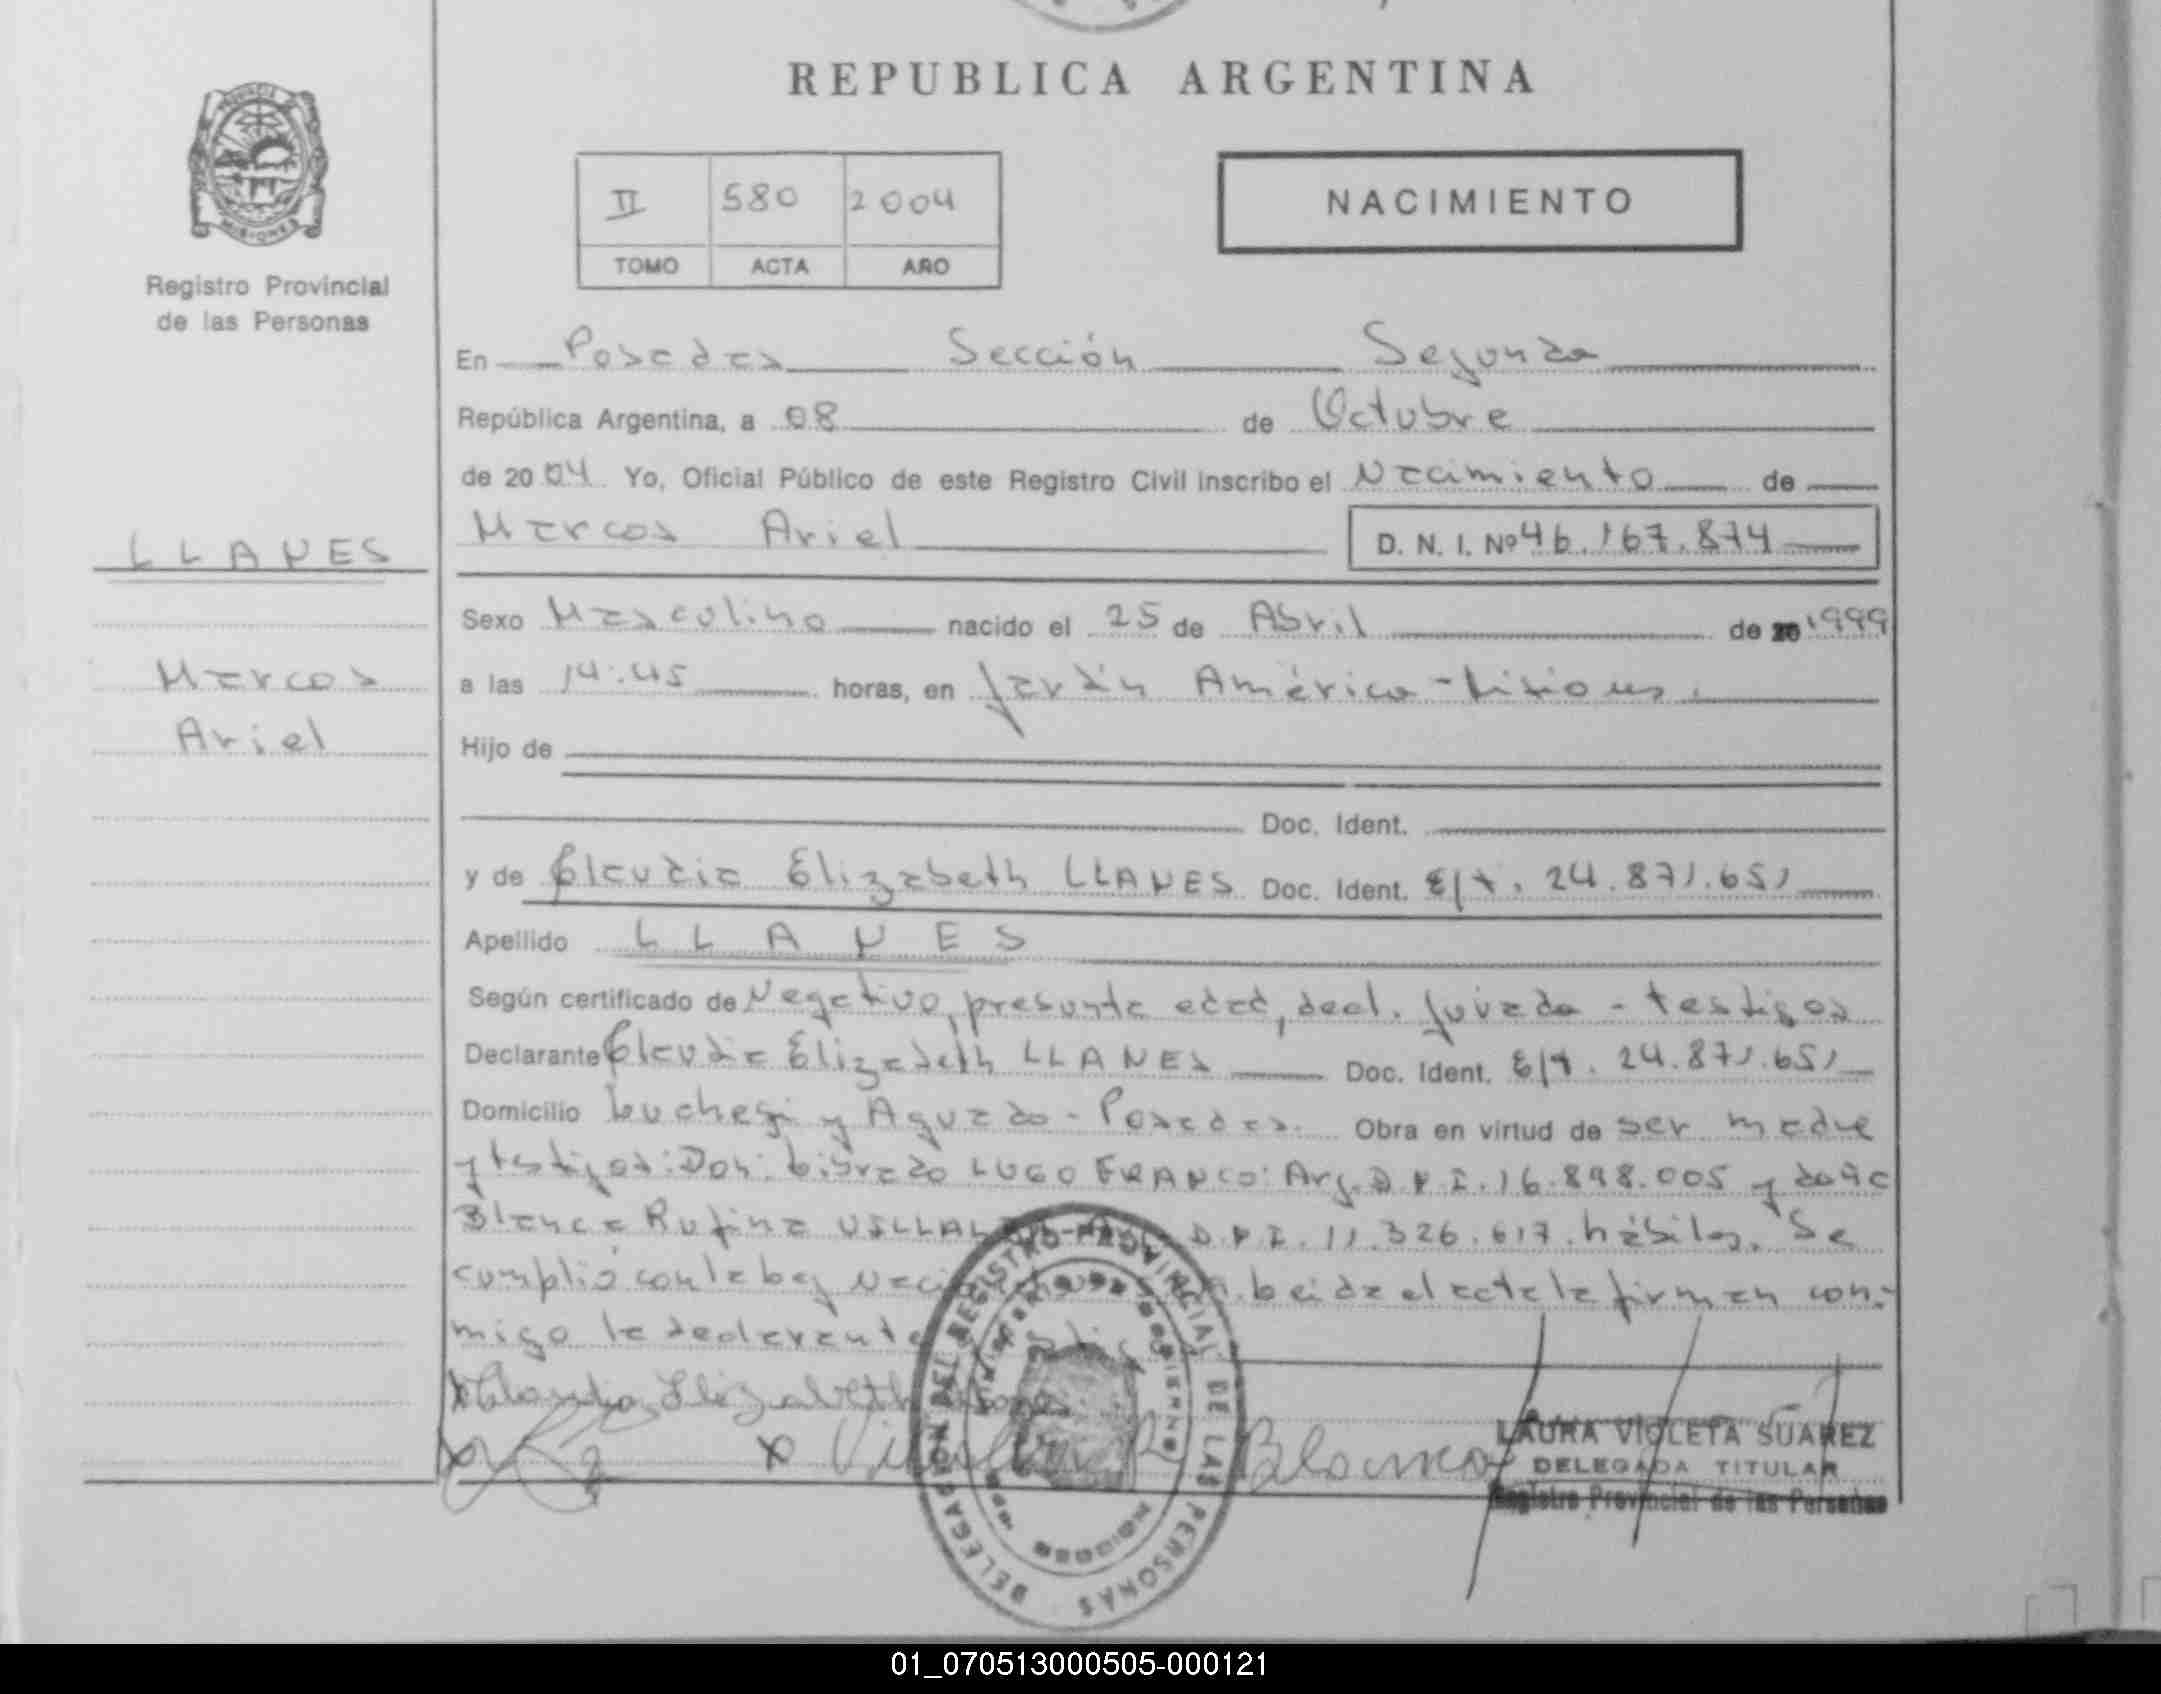 REPUBLICA ARGENTINA
PROVINCIA DE MISIONES
Registro Provincial
de las Personas
II 580 2004
TOMO ACTA AÑO
NACIMIENTO
En Posadas Sección Segunda
República Argentina, a 08 de Octubre
de 20 04 Yo, Oficial Público de este Registro Civil inscribo el Nacimiento de
LLANES
Marcos Ariel D. N. I. Nº 46.167.874
Sexo Masculino nacido el 25 de Abril de 20 1999
Marcos
a las 14:45 horas, en Jardín América - Misiones.
Ariel
Hijo de
Doc. Ident.
y de Claudia Elizabeth LLANES Doc. Ident. 24.871.651
Apellido LLANES
Según certificado de Negativo, presunta edad, decl. jurada - testigos
Declarante Claudia Elizabeth LLANES Doc. Ident. 24.871.651
Domicilio y Aguado - Posadas. Obra en virtud de ser madre
y testigos: Don: Librado LUGO FRANCO: Arg. D.N.I. 16.898.005 y doña
Blanca Rufina D.N.I. 11.326.617. hábiles. Se
cumplió con la Ley Leida el acta la firman con-
migo la declarante
Claudia Elizabeth
x x Blanca
LAURA VIOLETA SUAREZ
DELEGADA TITULAR
Registro Provincial de las Personas
DELEGACION DEL REGISTRO PROVINCIAL DE LAS PERSONAS
01_070513000505-000121